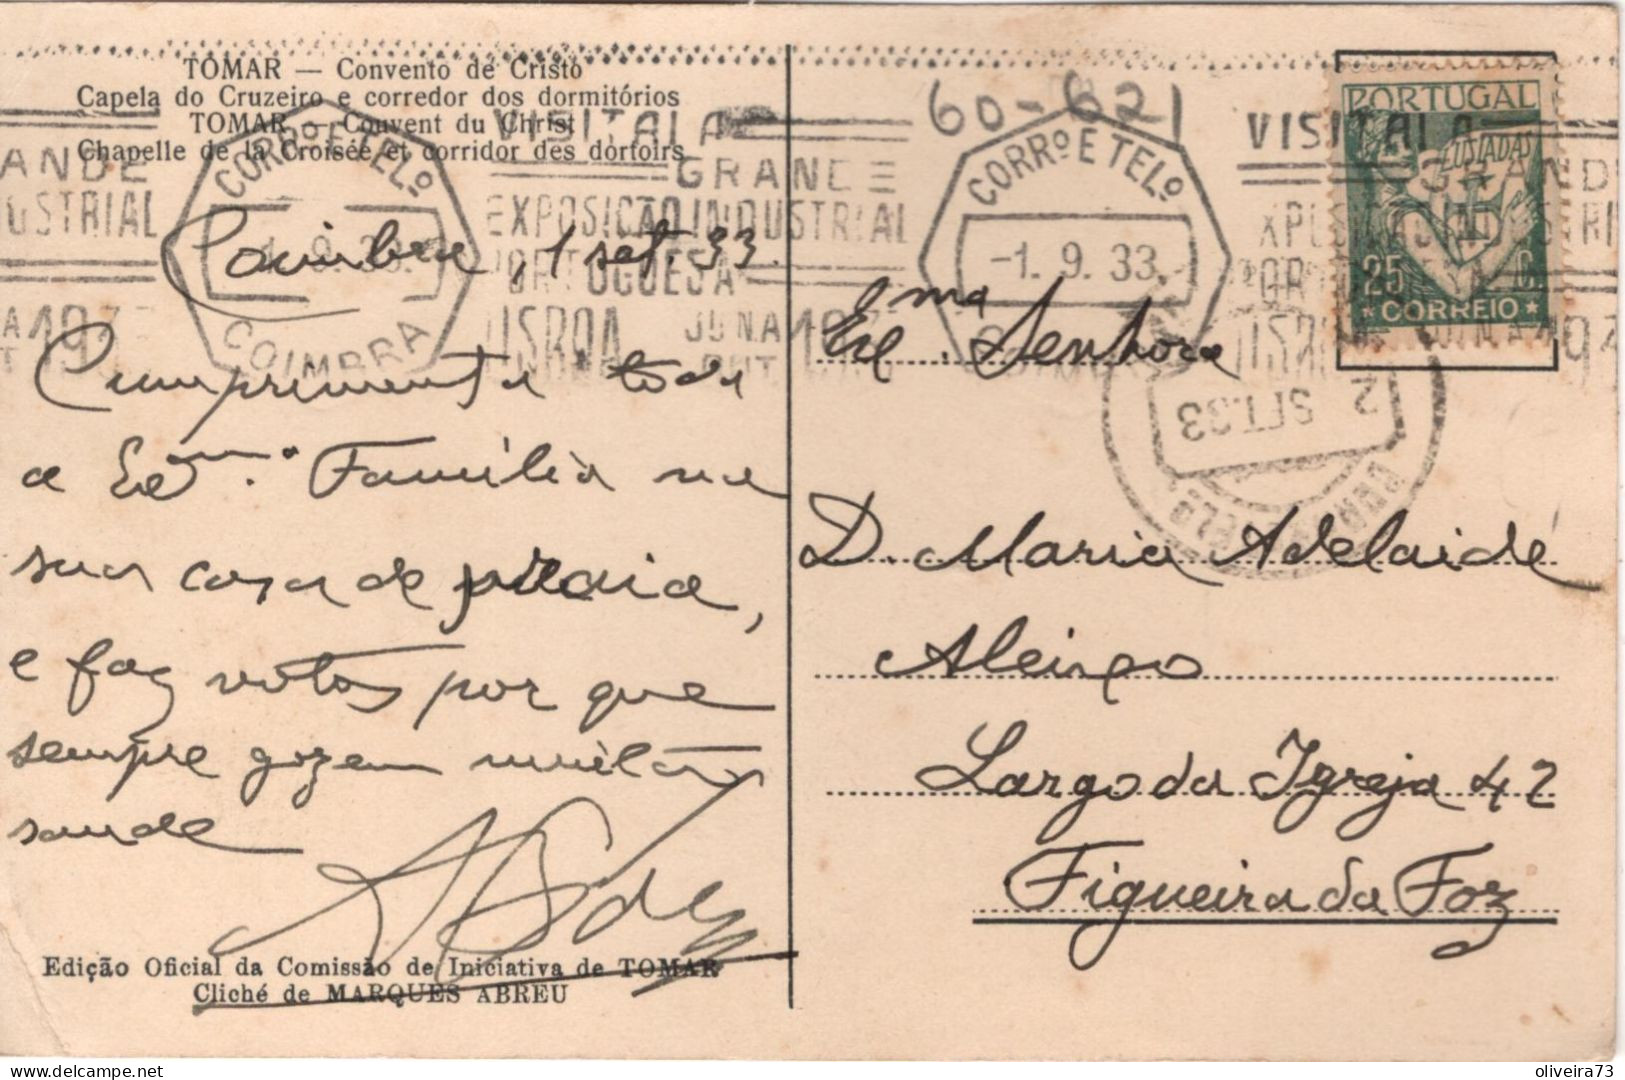 TOMAR — Convento de Cristo
Capela do Cruzeiro e corredor dos dormitórios
TOMAR — Couvent du Christ
Chapelle de la Croisée et corridor des dortoirs
Coimbra, 1 set. 33.
Cumprimenta toda
a Exma. Família na
sua casa de praia,
e faz votos por que
sempre gozem muita
saude
Edição Oficial da Comissão de Iniciativa de TOMAR
Cliché de MARQUES ABREU
60-621
CORRº E TELº
-1. 9. 33.
COIMBRA
VISITAI A
GRANDE
EXPOSIÇÃO INDUSTRIAL
PORTUGUESA
LISBOA
CORRº E TELº
-1. 9. 33.
VISITAI A
PORTUGAL
LUSIADAS
25 C.
CORREIO
2 SET. 33
Exma. Senhora
D. Maria Adelaide
Largo da Igreja 42
Figueira da Foz
oliveira73